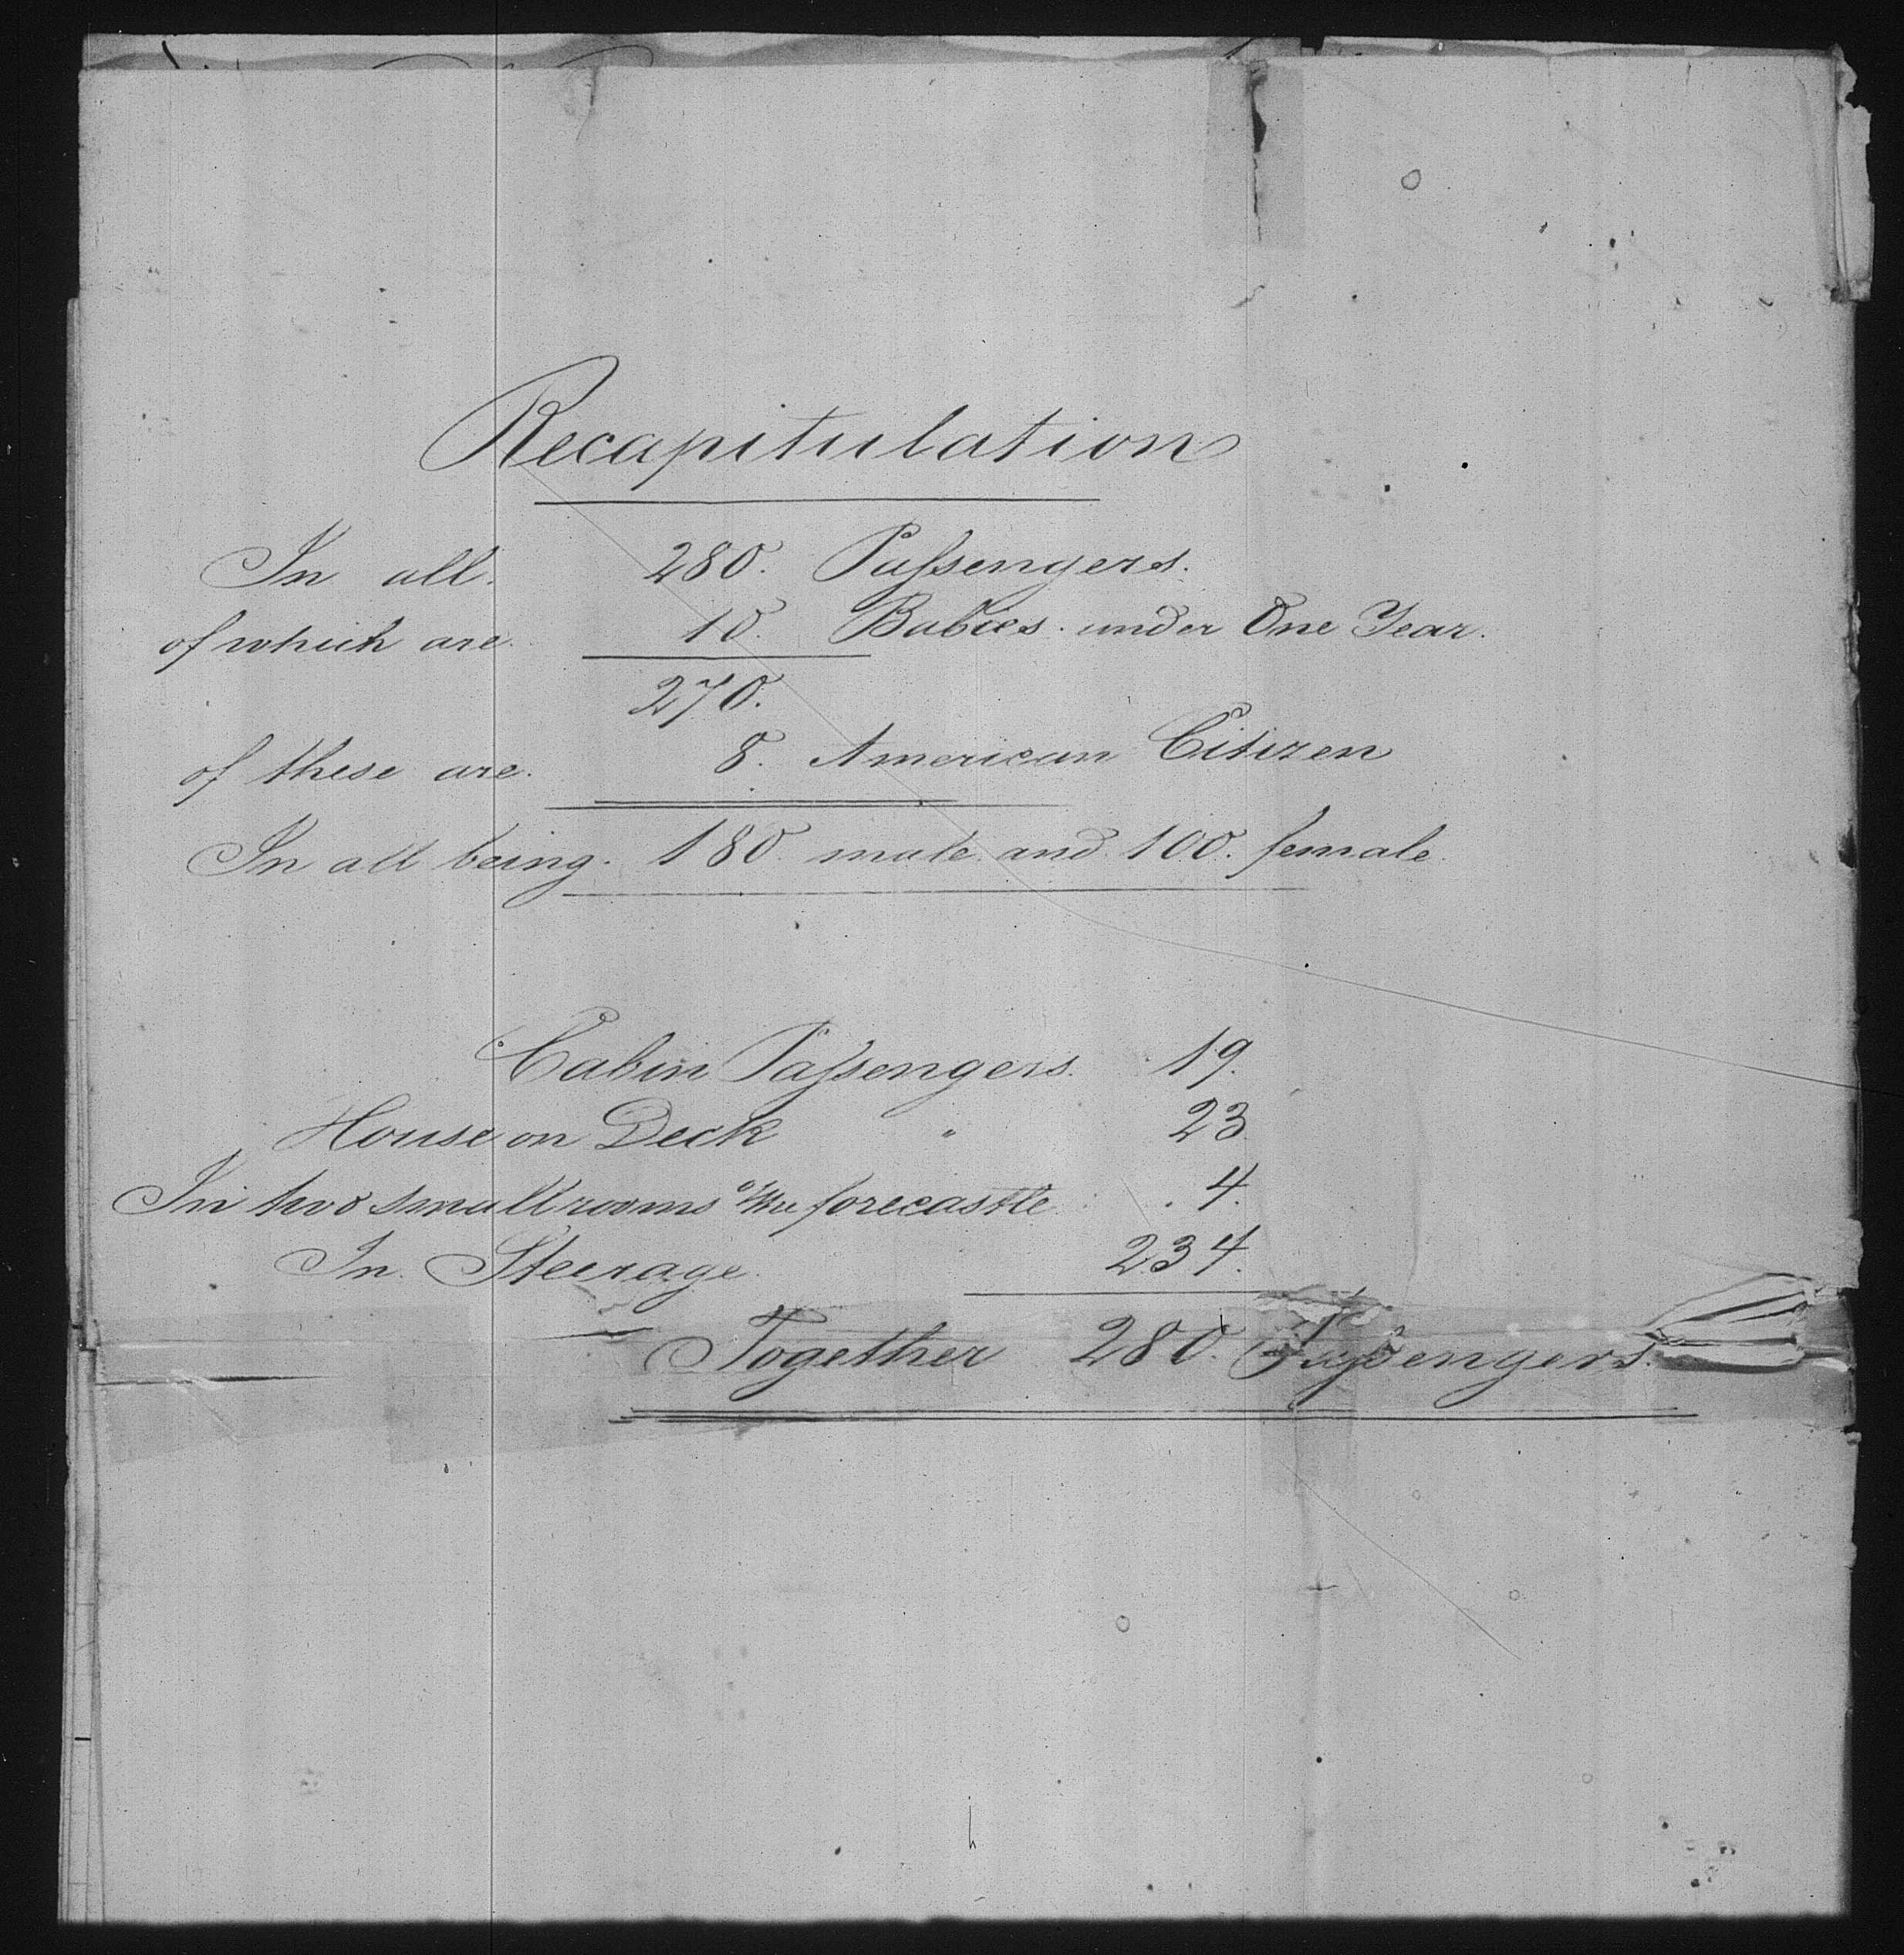 Recapitulation
In all. 280. Passengers.
of which are. 10. Babies. under One Year.
270.
of these are. 8. American Citizen
In all being. 180. male and 100. female.
Cabin Passengers. 19.
House on Deck " 23
In two small rooms o/the forecastle 4.
In Steerage. 234.
Together 280. Passengers.